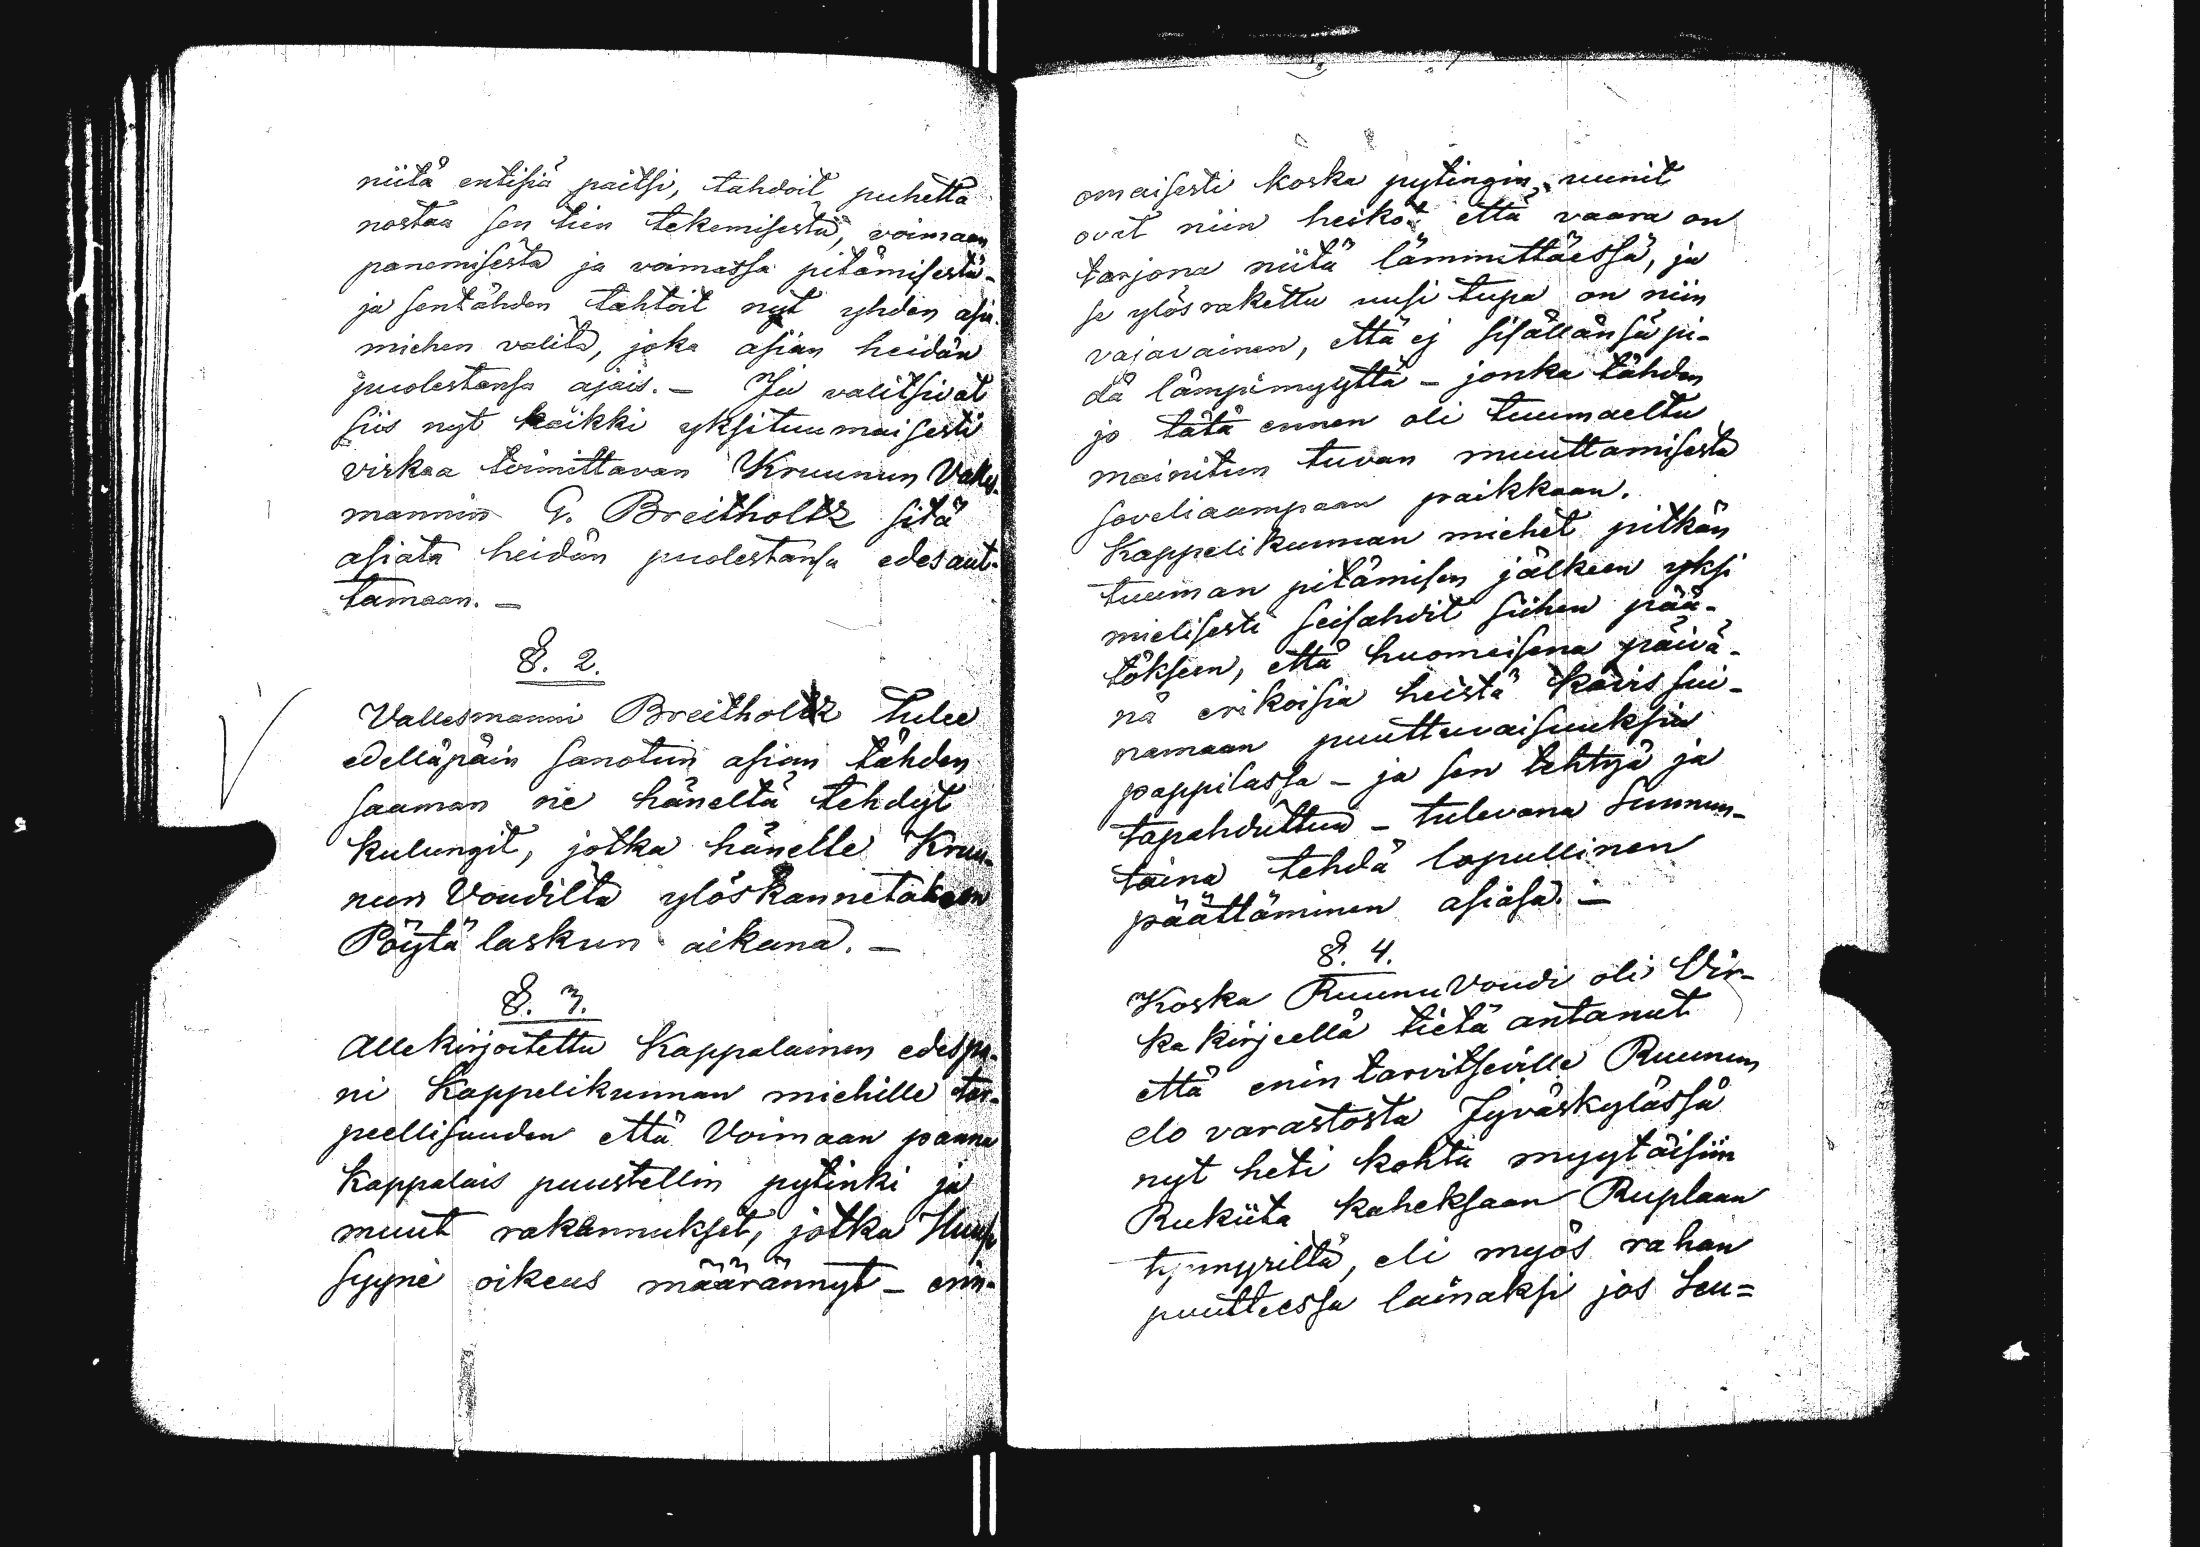 niitä entisiä paitsi, tahdoit puhetta
nostaa sen tien tekemisestä, voimaan
panemisesta ja voimassa pitämisestä -
ja sentähden tahtoit nyt yhden asia-
miehen valita, joka asian heidän
puolestansa ajais. - Ja valitsivat
siis nyt kaikki yksituumaisesti
virkaa toimittavan Kruunun Valles-
mannin G. Breitholtz sitä
asiata heidän puolestansa edesaut-
tamaan. -
§. 2.
Vallesmanni Breitholtz tulee
edelläpäin sanotun asian tähden
saaman ne häneltä tehdyt
kulungit, jotka hänelle Kruu-
nun Voudilta ylöskannetakoon
Pöytä laskun aikana. -
§. 3.
Allekirjoitettu Kappalainen edespa-
ni Kappelikunnan miehille tar-
peellisuuden että Voimaan panna
Kappalais puustellin pytinki ja
muut rakannukset, jotka Huuse
syyne oikeus määrännyt - enin-
omaisesti koska pytingin uunit
ovat niin heikot että vaara on
tarjona niitä lämmittäessä, ja
se ylös rakettu uusi tupa on niin
vajavainen, että ej sisällänsä pi-
dä lämpimyyttä - jonka tähden
jo tätä ennen oli tuumaeltu
mainitun tuvan muuttamisesta
soveliaampaan paikkaan.
Kappelikunnan miehet pitkän
tuuman pitämisen jälkeen yksi
mielisesti seisahdit siihen pää-
tökseen, että huomeisena päivä-
nä erikoisia heistä kävis sui-
namaan puuttuvaisuuksia
pappilassa - ja sen tehtyä ja
tapahduttua - tulevana Sunnun-
taina tehdä lopullinen
päättäminen asiasa. -
§. 4.
Koska Ruunu Voudi oli Vir-
ka kirjeellä tietä antanut
että enin tarvitseville Ruunun
elo varastosta Jyväskylässä
nyt heti kohta myytäisiin
Rukiita kaheksaan Ruplaan
tynnyriltä, eli myös rahan
puutteessa lainaksi jos Seu=